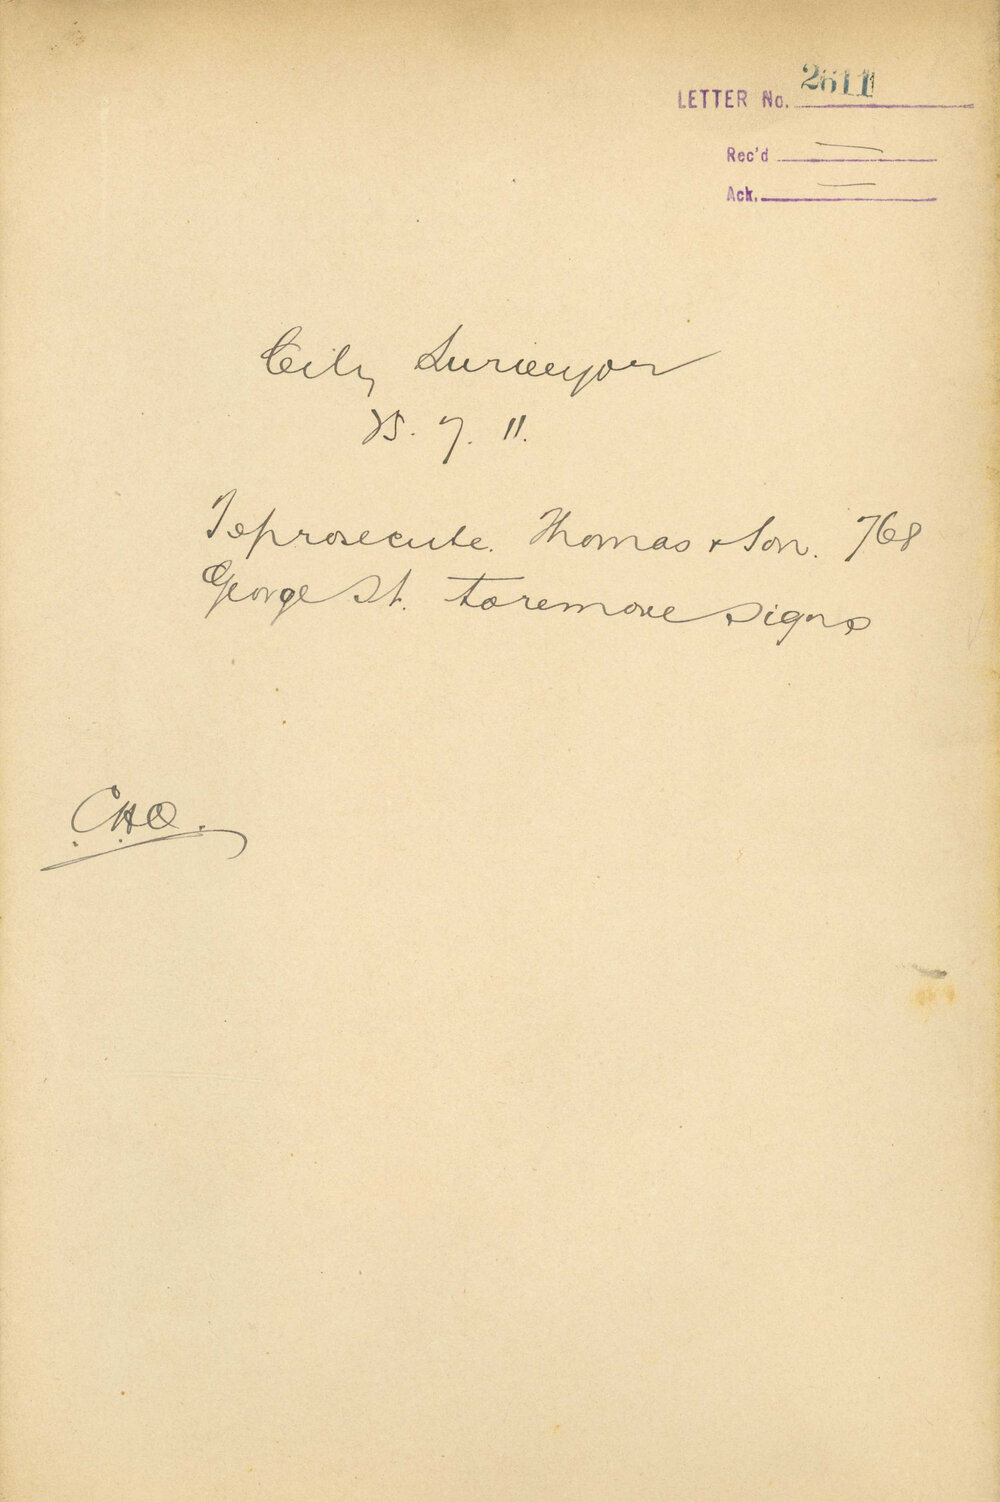 LETTER No. 2611
Rec'd —
Ack. —
City Surveyor
25. 7. 11.
To prosecute. Thomas & Son. 768
George St. to remove signs
C.H.O.